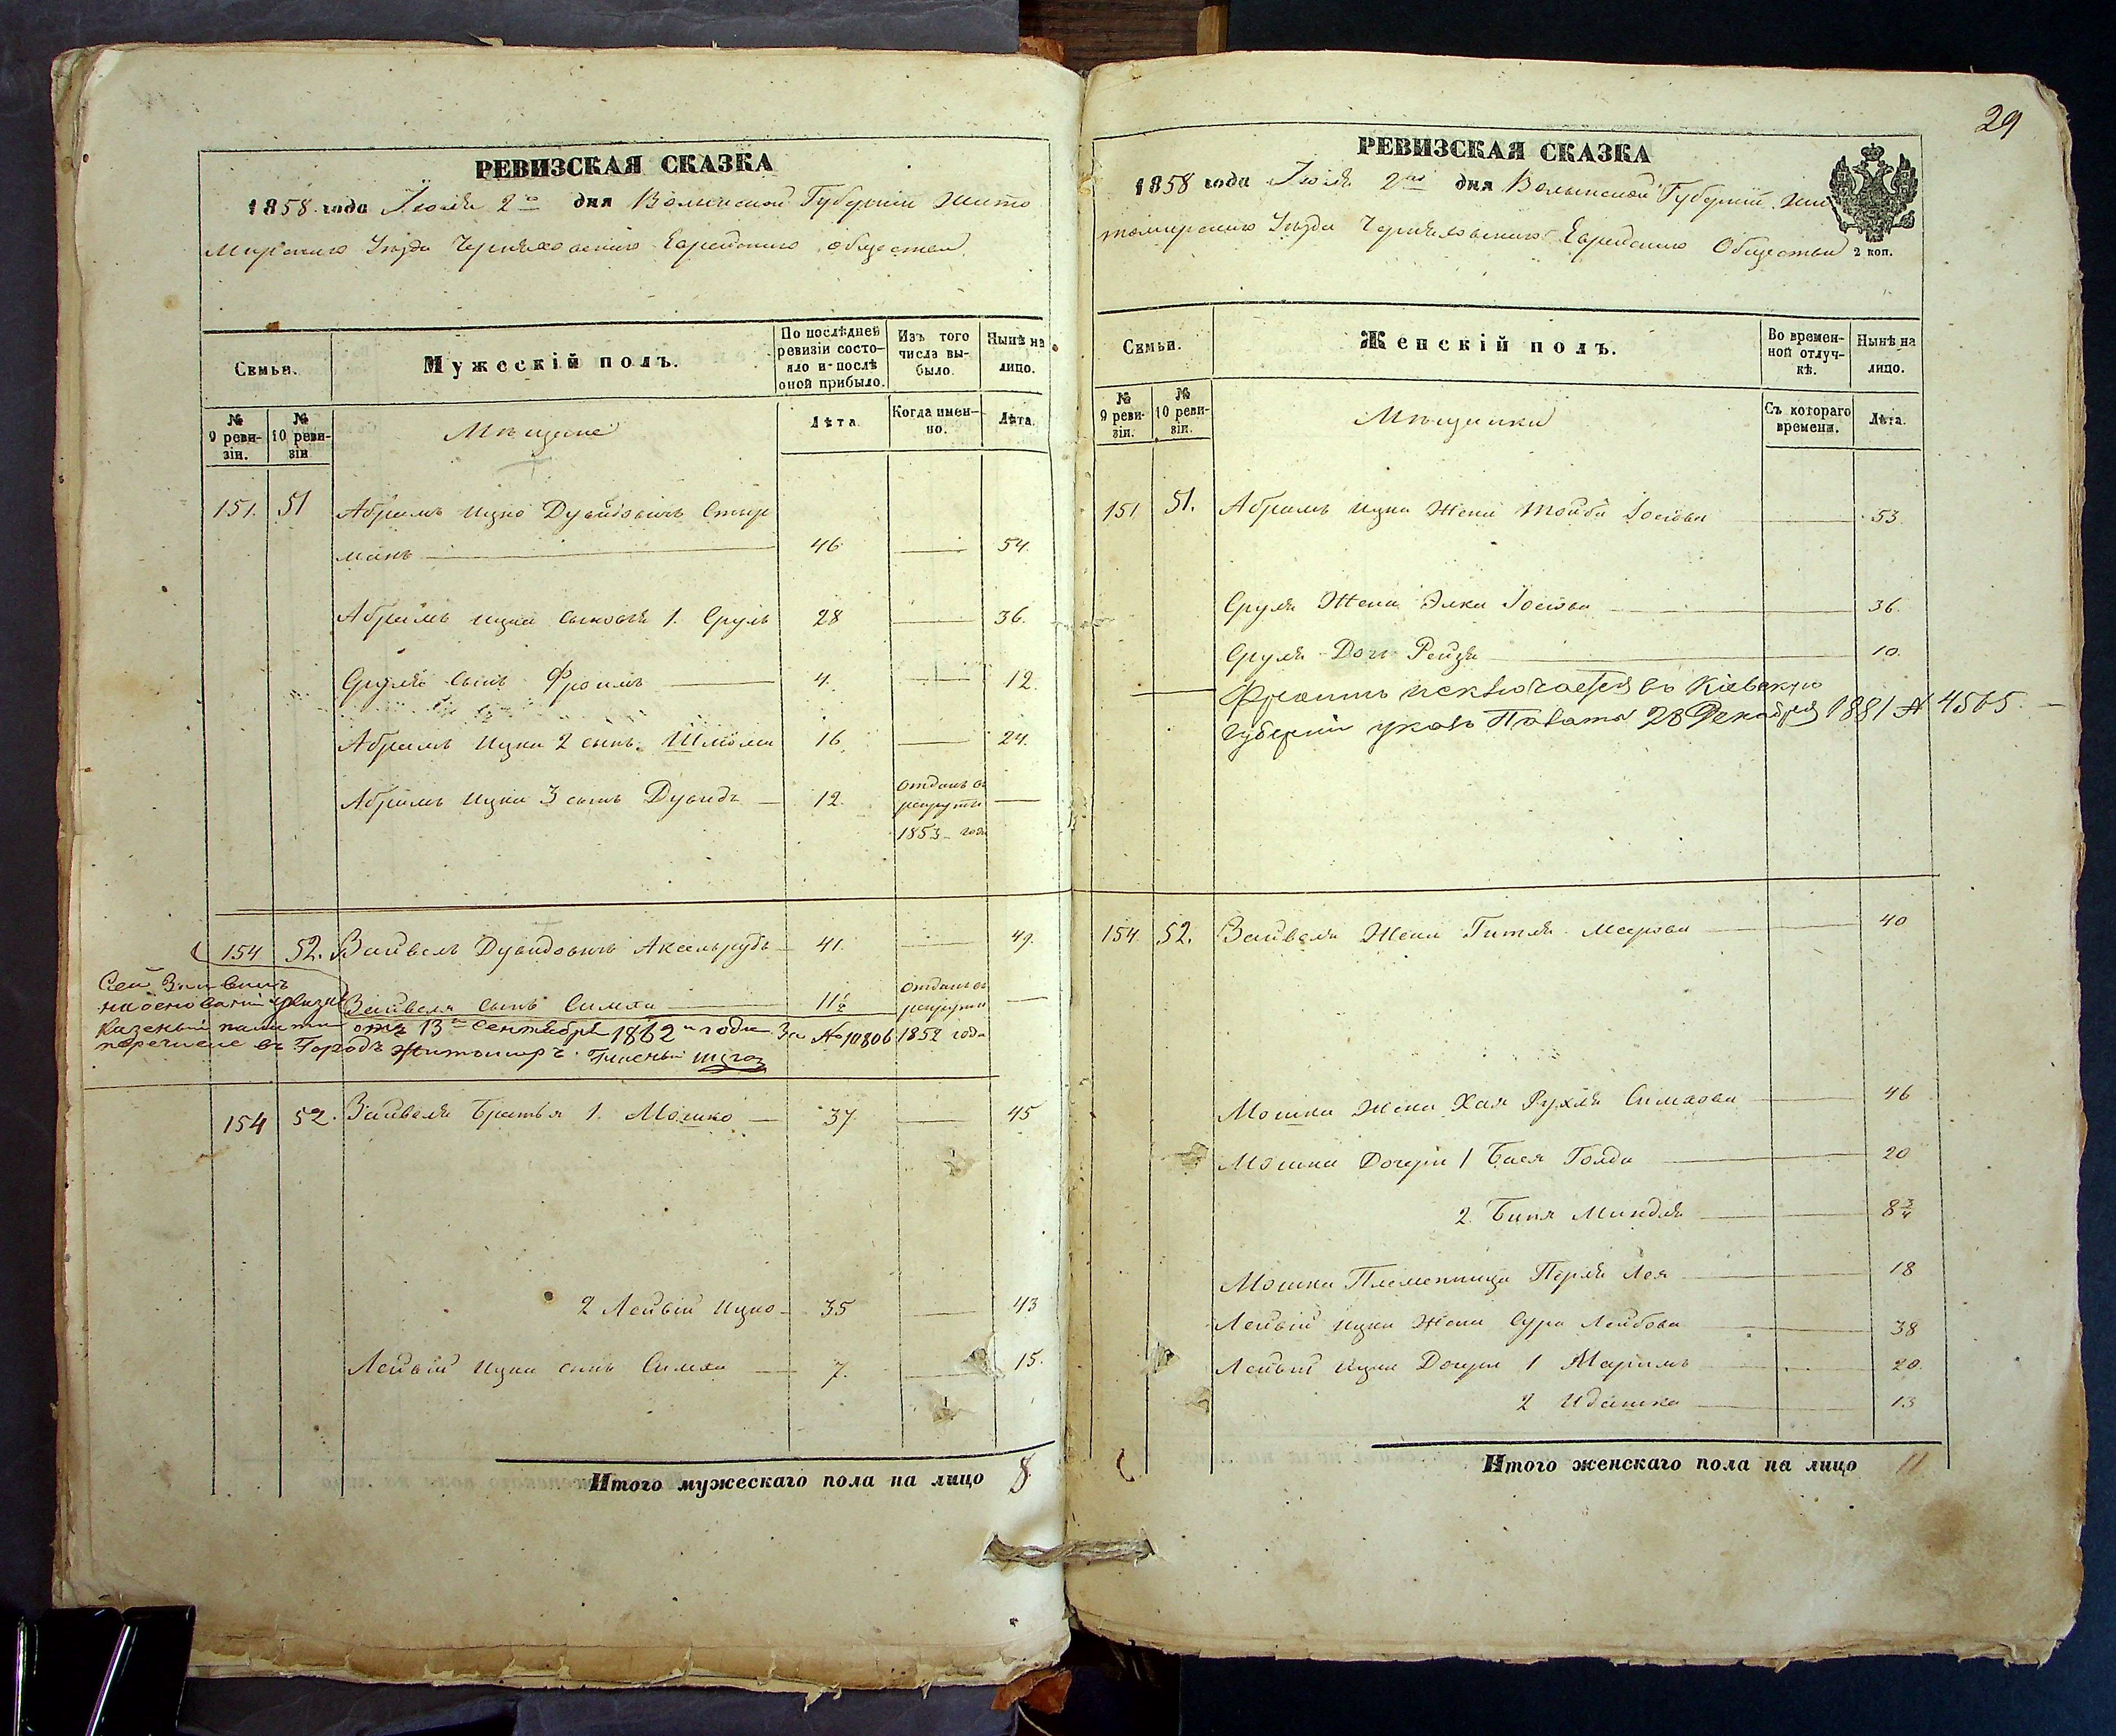 РЕВИЗСКАЯ СКАЗКА
1858 года Іюля 2го дня Волынской Губерніи Жито
мирскаго Уѣзда Черняховскаго Еврейскаго общества
Семьи.
Мужескій полъ.
По послѣдней ревизіи состо-
яло и послѣ оной прибыло.
Изъ того числа вы-
было.
Нынѣ на лицо.
№ 9 реви-
зіи.
№ 10 реви-
зіи
Мѣщане
Лѣта.
Когда имен-
но.
Лѣта.
151. 51 Абрамъ Ицко Дувидовичъ Стыр
манъ 46 54.
Абрамъ Ицки сыновья 1. Сруль 28 36.
Сруля сынъ Фроимъ 4. 12.
Абрамъ Ицки 2 сынъ Шлёма 16. 24.
Абрамъ Ицки 3 сынъ Дувидъ 12. отданъ въ
рекруты
1853 года
154 52. Зайвель Дувидовичъ Аксельрудъ 41. 49.
Сей Зайвель
на основаніи указа
Зайвеля сынъ Симха 11½ отданъ въ
рекруты
1852 года
Казеной палаты отъ 13го Сентября 1862го года За № 10806
перечислен въ Городъ Житомиръ. Гласный
154 52. Зайвеля Братья 1. Мошко 37 45
2 Лейвій Ицко 35 43
Лейвій Ицки сынъ Симха 7. 15.
Итого мужескаго пола на лицо 8
29
РЕВИЗСКАЯ СКАЗКА
1858 года Іюля 2го дня Волынской Губерніи Жи
томирскаго Уѣзда Черняховскаго Еврейскаго Общества
2 коп.
Семьи.
Женскій полъ.
Во времен-
ной отлуч-
кѣ.
Нынѣ на лицо.
№ 9 реви-
зіи.
№ 10 реви-
зіи.
Мѣщанки
Съ котораго
времени.
Лѣта.
151 51. Абрамъ Ицки Жена Тойба Іосьова 53.
Сруля Жена Элка Іосьова 36.
Сруля Дочь Рейзя 10.
Фроимъ исключается въ Кіевскую
Губернію указъ Палаты 28 Декабря 1881 № 4565.
154 52. Зайвеля Жена Гитля Меерова 40
Мошка Жена Хая Рухля Симхова 46
Мошка Дочери 1 Бася Голда 20
2. Биня Миндля 8¾
Мошка Племенница Перля Лея 18
Лейвій Ицки Жена Сура Лейбова 38
Лейвій Ицки Дочери 1 Маримъ 20.
2 Идашка 13
Итого женскаго пола на лицо 11